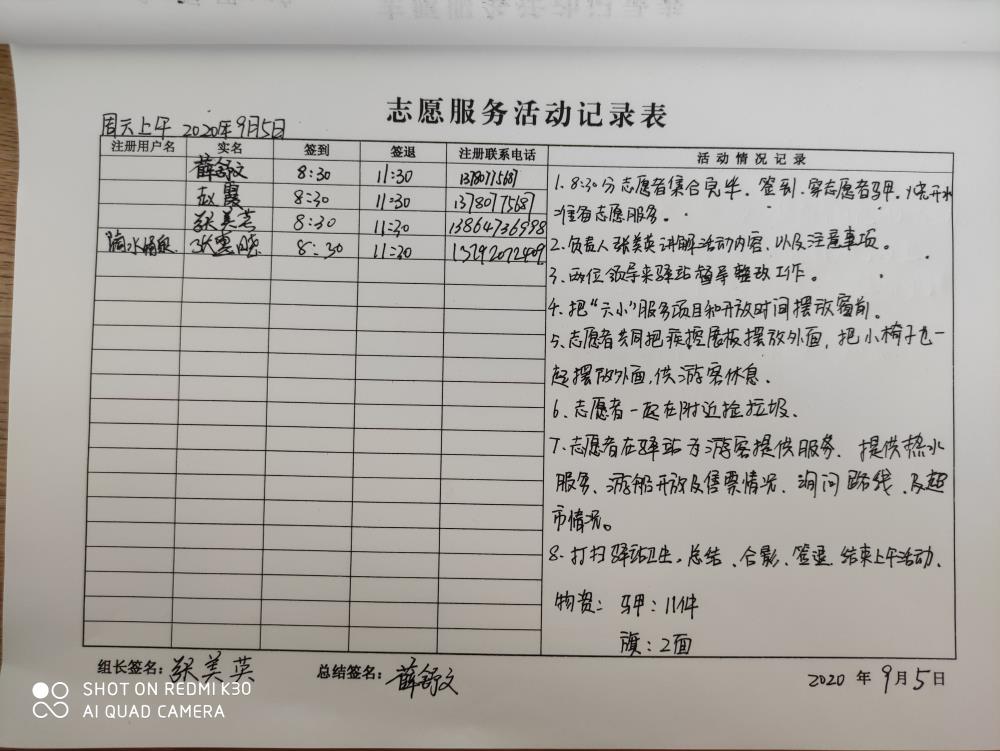 志愿服务活动记录表
周六上午 2020年9月5日
注册用户名 实名 签到 签退 注册联系电话 活动情况记录
薛舒文 8:30 11:30 13780775687
赵霞 8:30 11:30 13780775687
张美英 8:30 11:30 13864736998
张惠晓 8:30 11:30 13792072409
1. 8:30分志愿者集合完毕。签到.穿志愿者马甲。烧开水
准备志愿服务。
2.负责人张美英讲解活动内容.以及注意事项。
3、两位领导来驿站督导整改工作。
4.把“六小”服务项目和开放时间摆放窗前。
5、志愿者共同把疾控展板摆放外面，把小椅子也一
起摆放外面，供游客休息.
6、志愿者一起在附近捡垃圾.
7、志愿者在驿站为游客提供服务、提供热水
服务、游船开放及售票情况、询问路线、及超
市情况。
8.打扫驿站卫生。总结、合影、签退.结束上午活动.
物资：马甲：11件
旗：2面
组长签名：张美英 总结签名：薛舒文 2020 年 9月5日
SHOT ON REDMI K30
AI QUAD CAMERA